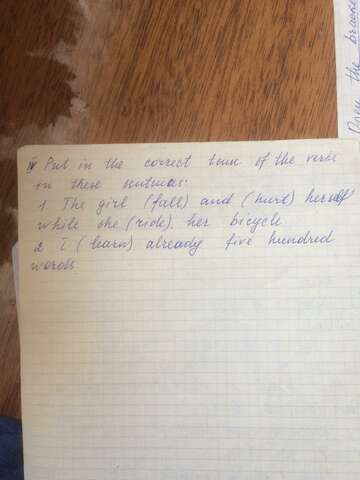 IV Put in the correct tense of the verbs
in these sentences:
1. The girl (fall) and (hurt) herself
while she (ride). her bicycle
2 I (learn) already five hundred
words.
Open the bracke